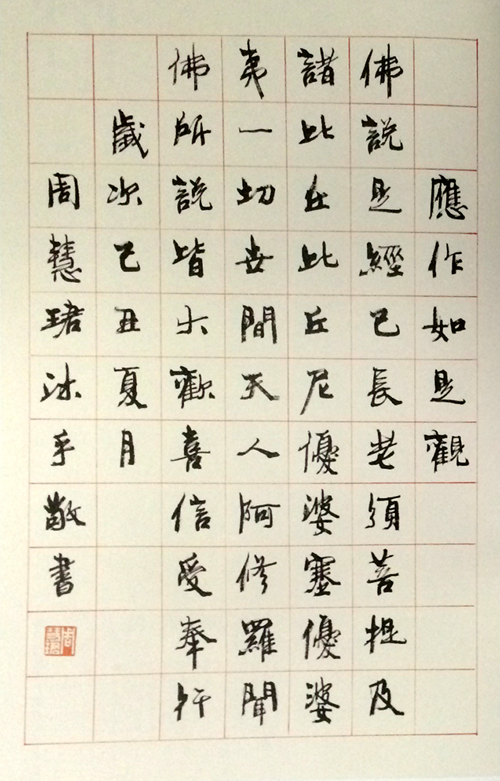 應作如是觀
佛說是經已長老須菩提及
諸比丘比丘尼優婆塞優婆
夷一切世間天人阿修羅聞
佛所說皆大歡喜信受奉行
歲次己丑夏月
周慧珺沐手敬書